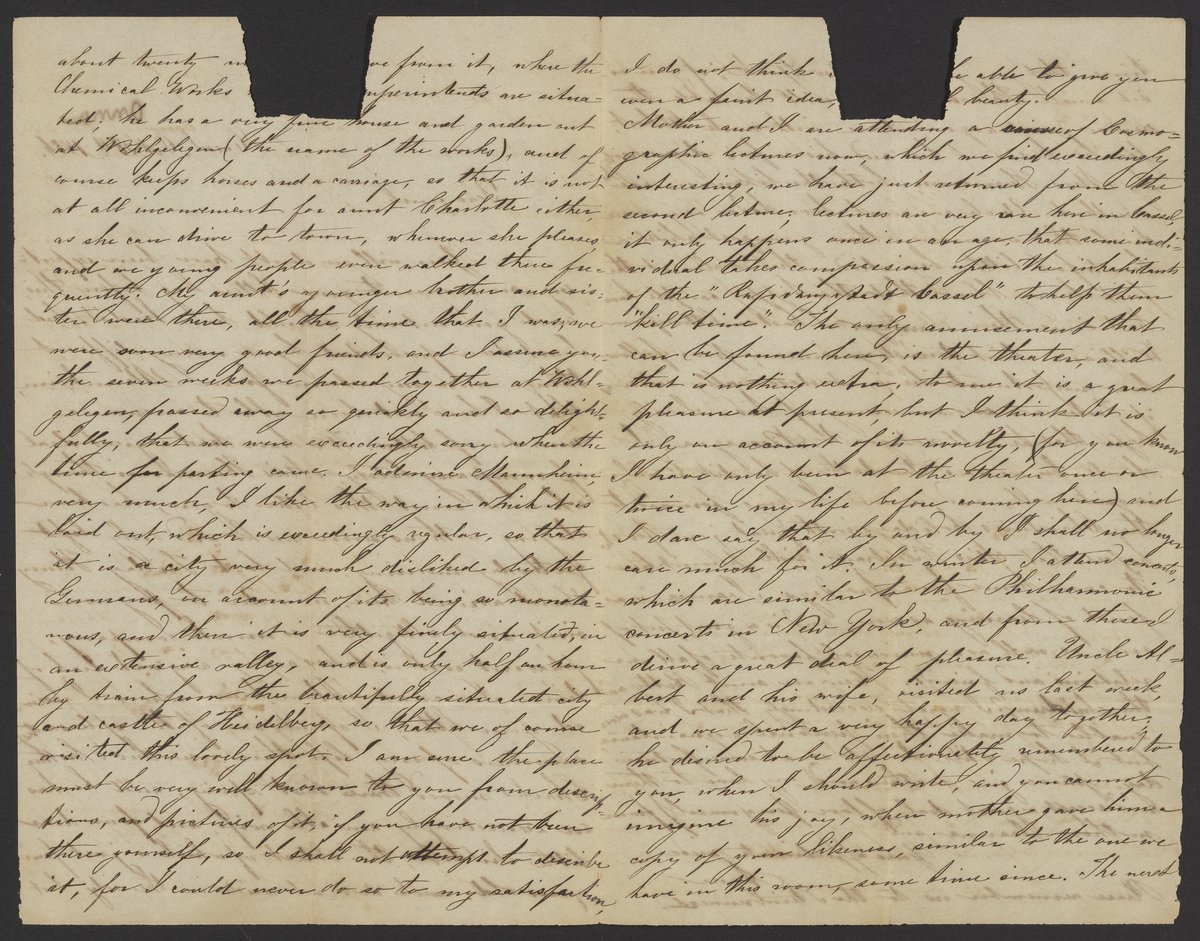 about twenty m ve from it, where the
Chemical Works uperintends are situa-
ted; he has a very fine house and garden out
at Wohlgelegen (the name of the works), and of
course keeps horses and a carriage, so that it is not
at all inconvenient for aunt Charlotte either,
as she can drive to town, whenever she pleases,
and we young people even walked there fre-
quently. My aunt's younger brother and sis-
ter were there, all the time that I was, we
were soon very good friends, and I assure you,
the seven weeks we passed together at Wohl-
gelegen, passed away so quickly and so delight-
fully, that we were exceedingly sorry when the
time for parting came. I admire Mannheim
very much, I like the way in which it is
laid out, which is exceedingly regular, so that
it is a city very much disliked by the
Germans, on account of its being so monoto-
nous, and then it is very finely situated, in
an extensive valley, and is only half an hour
by train from the beautifully situated city
and castle of Heidelberg, so that we of course
visited this lovely spot. I am sure the place
must be very well known to you from descrip-
tions, and pictures of it, if you have not been
there yourself, so I shall not attempt to describe
it, for I could never do so to my satisfaction,
I do not think e able to give you
even a faint idea, l beauty.
Mother and I are attending a course of Cosmo-
graphic lectures now, which we find exceedingly
interesting, we have just returned from the
second lecture; lectures are very rare here in Cassel
it only happens once in an age, that some indi-
vidual takes compassion upon the inhabitants
of the "Cassel" to help them
"kill time". The only amusement that
can be found here, is the theater, and
that is nothing extra, to me it is a great
pleasure at present, but I think it is
only on account of its novelty, (for you know
I have only been at the theater once or
twice in my life before coming here) and
I dare say that by and by I shall no longer
care much for it. In winter I attend concerts,
which are similar to the Philharmonic
concerts in New York, and from these I
derive a great deal of pleasure. Uncle Al-
bert and his wife, visited us last week,
and we spent a very happy day together;
he desired to be affectionately remembered to
you, when I should write, and you cannot
imagine his joy, when mother gave him a
copy of your likeness, similar to the one we
have in this room, some time since. The next